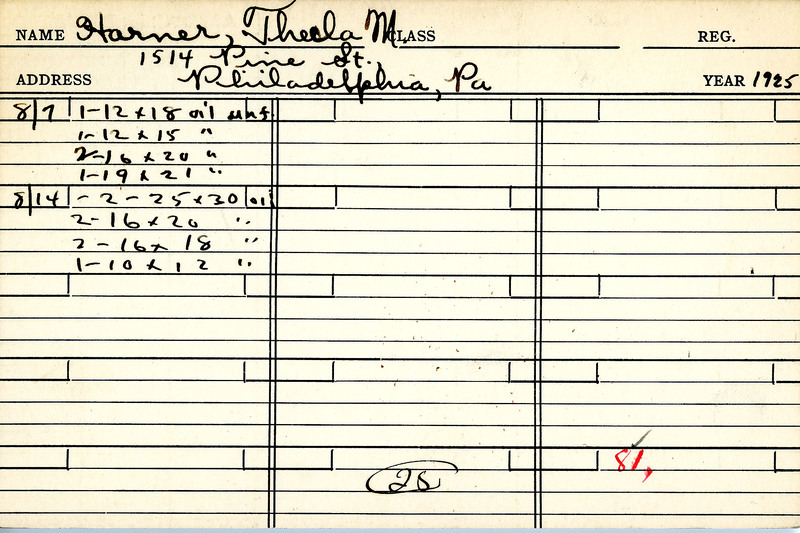 NAME Harner, Thecla M. CLASS REG.
1514 Pine St.,
ADDRESS Philadelphia, Pa YEAR 1925
8/7 1-12 x 18 oil unf
1-12 x 15 "
2-16 x 20 "
1-19 x 21 "
8/14 - 2 - 25 x 30 oil
2-16 x 20 "
2-16 x 18 "
1-10 x 12 "
81,
28